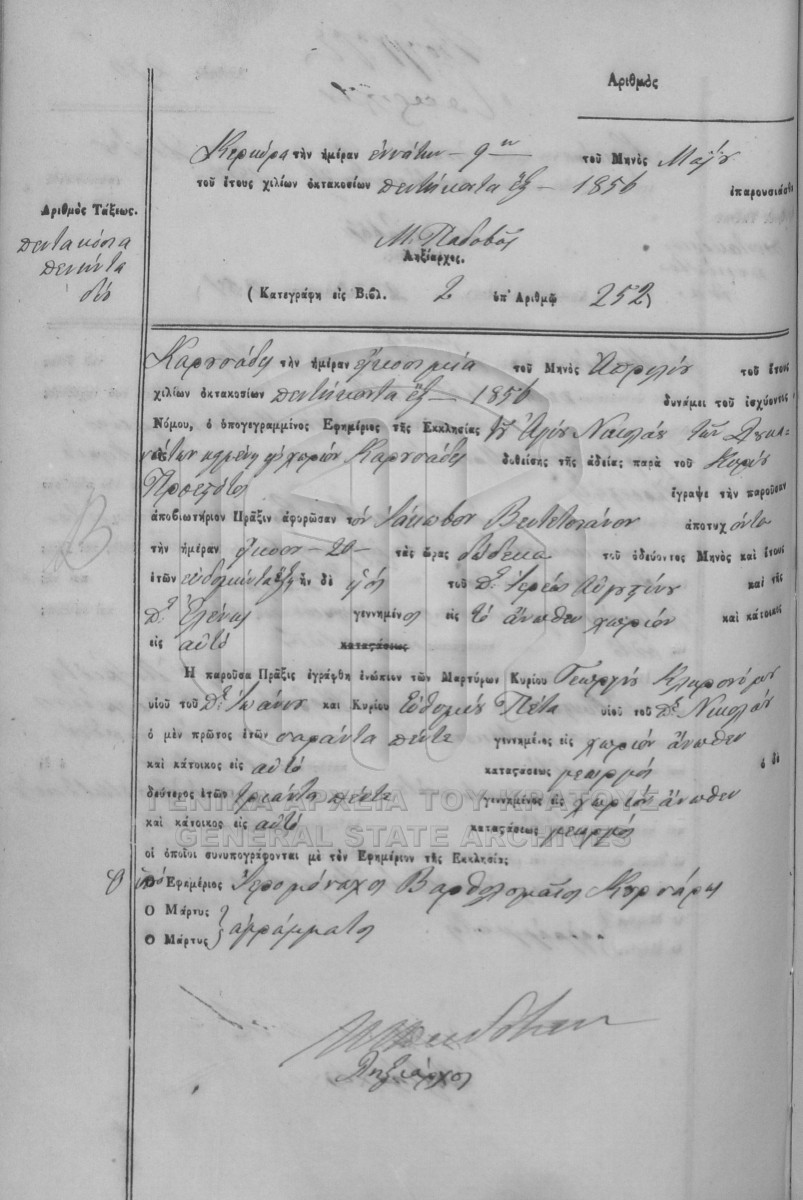 Αριθμὸς
Κερκύρα τὴν ἡμέραν ἐννάτην - 9η - τοῦ Μηνὸς Μαΐου
τοῦ ἔτους χιλίων ὀκτακοσίων πεντήκοντα ἓξ - 1856 ἐπαρουσιάσθη
Μ. Παδοβᾶς
Ληξίαρχος.
(Κατεγράφη εἰς Βιβλ. 2 ὑπ' Αριθμῷ 252
Αριθμὸς Τάξεως.
πεντακόσια
πενήντα
δύο
Καρουσάδες τὴν ἡμέραν εἴκοσι μία τοῦ Μηνὸς Απριλίου τοῦ ἔτους
χιλίων ὀκτακοσίων πεντήκοντα ἓξ - 1856 δυνάμει τοῦ ἰσχύοντος
Νόμου, ὁ ὑπογεγραμμένος Εφημέριος τῆς Εκκλησίας τοῦ Αγίου Νικολάου τῶν
χωρίον Καρουσάδες δοθείσης τῆς ἀδείας παρὰ τοῦ Κυρίου
Προεστότος ἔγραψε τὴν παροῦσαν
ἀποβιωτήριον Πράξιν ἀφορῶσαν τὸν Ιάκωβον ἀποτυχόντα
τὴν ἡμέραν εἴκοσι - 20 - τὰς ὥρας δώδεκα τοῦ ὁδεύοντος Μηνὸς καὶ ἔτους
ἐτῶν ἑβδομήντα ἕξη ἦν δὲ υἱὸς τοῦ Ιερέως Αὐγουστίνου καὶ τῆς
Ελένης γεννημένος εἰς τὸ ἄνωθεν χωρίον καὶ κάτοικος
εἰς αὐτό καταςάσεως
Η παροῦσα Πρᾶξις ἐγράφθη ἐνώπιον τῶν Μαρτύρων Κυρίου Γεωργίου Κληρονόμου
υἱοῦ τοῦ Ιωάννου καὶ Κυρίου Εὐθυμίου Πέτα υἱοῦ τοῦ Νικολάου
ὁ μὲν πρῶτος ἐτῶν σαράντα πέντε γεννημένος εἰς χωρίον ἄνωθεν
καὶ κάτοικος εἰς αὐτό καταςάσεως γεωργός ὁ δὲ
δεύτερος ἐτῶν τριάντα πέντε γεννημένος εἰς χωρίον ἄνωθεν
ΓΕΝΙΚΑ ΑΡΧΕΙΑ ΤΟΥ ΚΡΑΤΟΥΣ
καὶ κάτοικος εἰς αὐτό καταςάσεως γεωργός
GENERAL STATE ARCHIVES
οἱ ὁποῖοι συνυπογράφονται μὲ τὸν Εφημέριον τῆς Εκκλησίας
Ο Εφημέριος Ιερομόναχος Βαρθολομαῖος
Ο Μάρτυς
Ο Μάρτυς } ἀγράμματοι
Ληξίαρχος